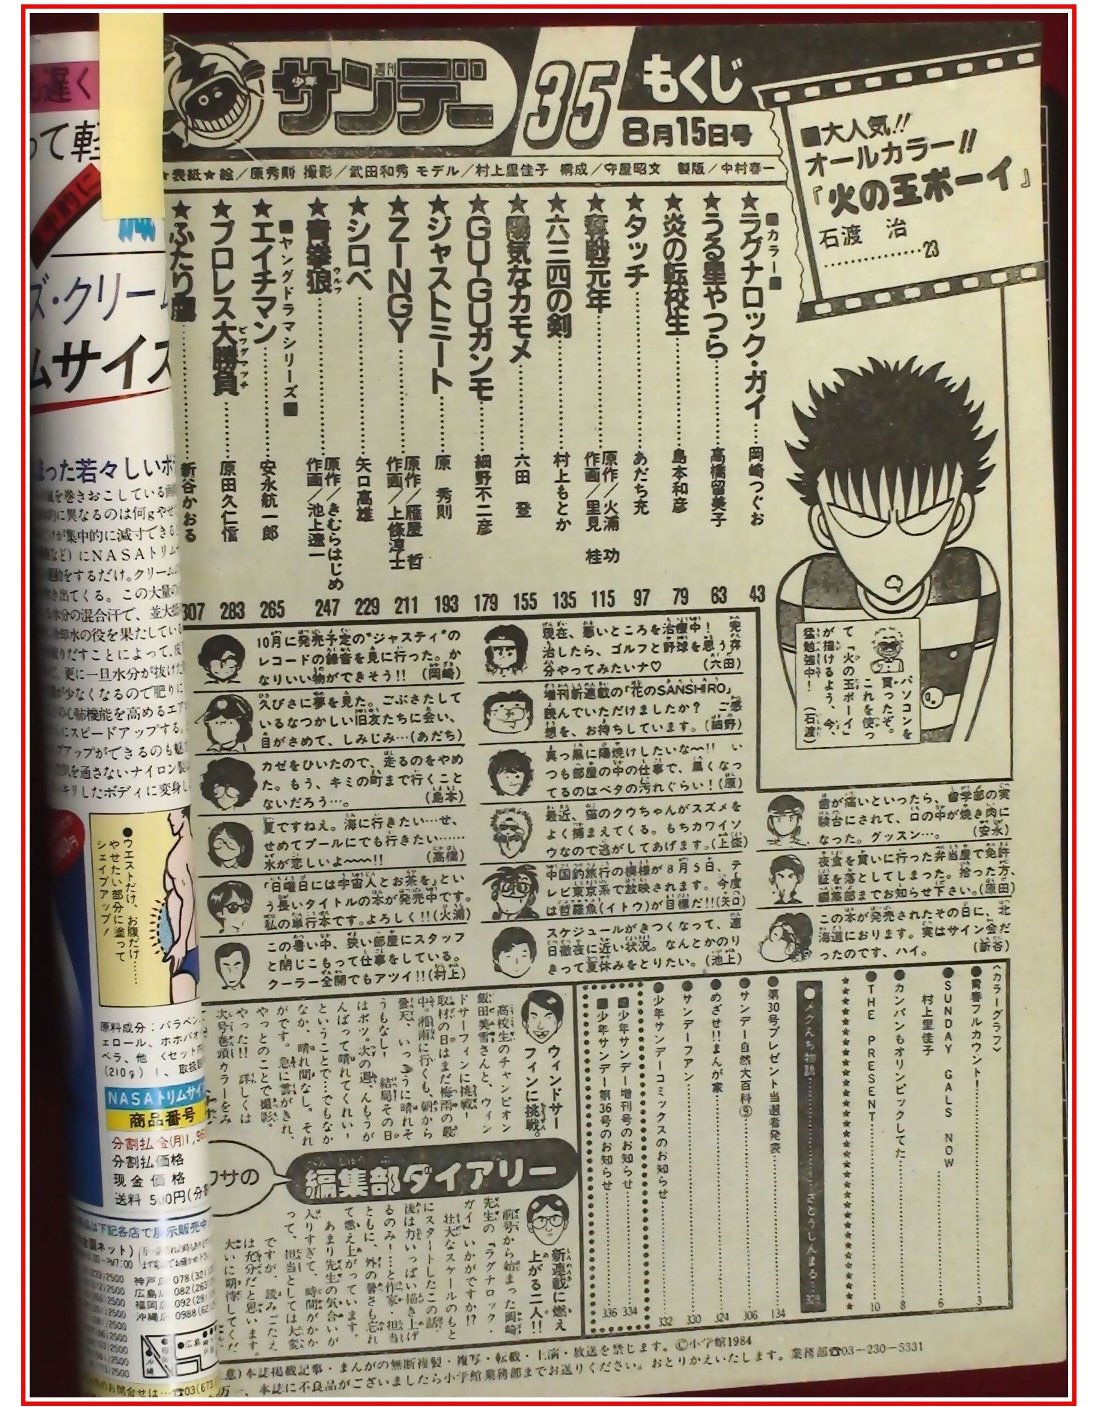 週刊
少年
サンデー
35
もくじ
8月15日号
★表紙★絵/原秀則 撮影/武田和秀 モデル/村上里佳子 構成/守屋昭文 製版/中村春一
■大人気!!
オールカラー!!
『火の玉ボーイ』
石渡 治
……………23
■カラー■
★ラグナロック・ガイ……岡崎つぐお 43
★うる星やつら……高橋留美子 63
★炎の転校生……島本和彦 79
★タッチ……あだち充 97
★奪戦元年……原作/火浦 功 作画/里見 桂 115
★六三四の剣……村上もとか 135
★陽気なカモメ……六田 登 155
★GU-GUガンモ……細野不二彦 179
★ジャストミート……原 秀則 193
★ZINGY……原作/雁屋 哲 作画/上條淳士 211
★シロベ……矢口高雄 229
★青拳狼……原作/きむらはじめ 作画/池上遼一 247
ウルフ
■ヤングドラマシリーズ■
★エイチマン……安永航一郎 265
★プロレス大勝負……原田久仁信 283
ビッグマッチ
★ふたり鷹……新谷かおる 307
パソコンを
買ったぞ。
これを使っ
て『火の玉ボーイ』
が描けるよう、今、
猛勉強中!(石渡)
10月に発売予定の“ジャスティ”の
レコードの録音を見に行った。か
なりいい物ができそう!!(岡崎)
久びさに夢を見た。ごぶさたして
いるなつかしい旧友たちに会い、
目がさめて、しみじみ…(あだち)
カゼをひいたので、走るのをやめ
た。もう、キミの町まで行くこと
ないだろう…。(島本)
夏ですねえ。海に行きたい…せ、
せめてプールにでも行きたい……
水が恋しいよ〜〜!!(高橋)
「日曜日には宇宙人とお茶を」とい
う長いタイトルの本が発売中です。
私の単行本です。よろしく!!(火浦)
この暑い中、狭い部屋にスタッフ
と閉じこもって仕事をしている。
クーラー全開でもアツイ!!(村上)
現在、悪いところを治療中! 完
治したら、ゴルフと野球を思う存
分やってみたいナ♡(六田)
増刊新連載の「花のSANSHIRO」
読んでいただけましたか? ご感
想を、お待ちしています。(細野)
真っ黒に陽焼けしたいな〜!! い
つも部屋の中の仕事で、黒くなっ
てるのはベタの汚れぐらい!(原)
最近、猫のクウちゃんがスズメを
よく捕まえてくる。もちカワイソ
ウなので逃がしてあげます。(上條)
中国釣旅行の模様が8月5日、テ
レビ東京系で放映されます。今度
は哲羅魚(イトウ)が目標だ!!(矢口)
スケジュールがきつくなって、連
日徹夜に近い状況。なんとかのり
きって夏休みをとりたい。(池上)
歯が痛いといったら、歯学部の実
験台にされて、口の中が焼き肉に
なった。グッスン…。(安永)
夜食を買いに行った弁当屋で免許
証を落としてしまった。拾った方、
編集部までお知らせ下さい。(原田)
この本が発売されたその日に、北
海道におります。実はサイン会だ
ったのです、ハイ。(新谷)
〈カラーグラフ〉
●青春フルカウント!……3
●SUNDAY GALS NOW……6
村上里佳子
●カンバンもオリンピックしてた……8
●THE PRESENT……10
●メクえち物語……さとうしんまる…328
●第30号プレゼント当選者発表……134
●サンデー自然大百科⑨……306
●めざせ!!まんが家……324
●サンデーファン……330
●少年サンデーコミックスのお知らせ……332
■少年サンデー増刊号のお知らせ……334
■少年サンデー第36号のお知らせ……336
ウィンドサー
フィンに挑戦。
高校生のチャンピオン
飯田美雪さんと、ウィン
ドサーフィンに挑戦!
取材の日はまだ梅雨の最
中。湘南に行くも、朝から
曇天、いっこうに晴れそ
うもなし! 結局その日
はボツ。次の週、てんもうが
んばって晴れてくれい!
ということで…でもなか
なか、晴れ間なし。それ
がです。急に雲がきれ、
やっとのことで撮影。
やった!! 詳しくは
次号巻頭カラーをみ
ウサの
編集部ダイアリー
新連載に燃え
上がる二人!!
前号から始まった岡崎
先生の『ラグナロック・
ガイ』いかがですか!?
壮大なスケールのもと
にスタートしたこの話、
後は力いっぱい描き上げ
るのみ!…と作家、担当
ともに、外の暑さも忘れ
て燃え上がっています。
あまり先生の気合いが
入りすぎて、時間がかか
って、担当としては大変
ですが、読みごたえ
は充分だと思います。
大いに期待してくだ
意)本誌掲載記事・まんがの無断複製・複写・転載・上演・放送を禁じます。©小学館1984
万一、本誌に不良品がございましたら小学館業務部までお送りください。おとりかえいたします。業務部☎03-230-5331
も遅く
って軽
ズ・クリー
ムサイズ
った若々しいボ
●ウエストだけ、お腹だけ……
やせたい部分に塗って
シェイプアップ!
原料成分:パラベン
(210g)
NASAトリムサイズ
商品番号
分割払金(月)1,96
分割払価格
現金価格
送料 500円(分
品は下記各店で展示販売中
神戸店 078(32
広島店 082(263
福岡店 092(28
沖縄店 0988(62